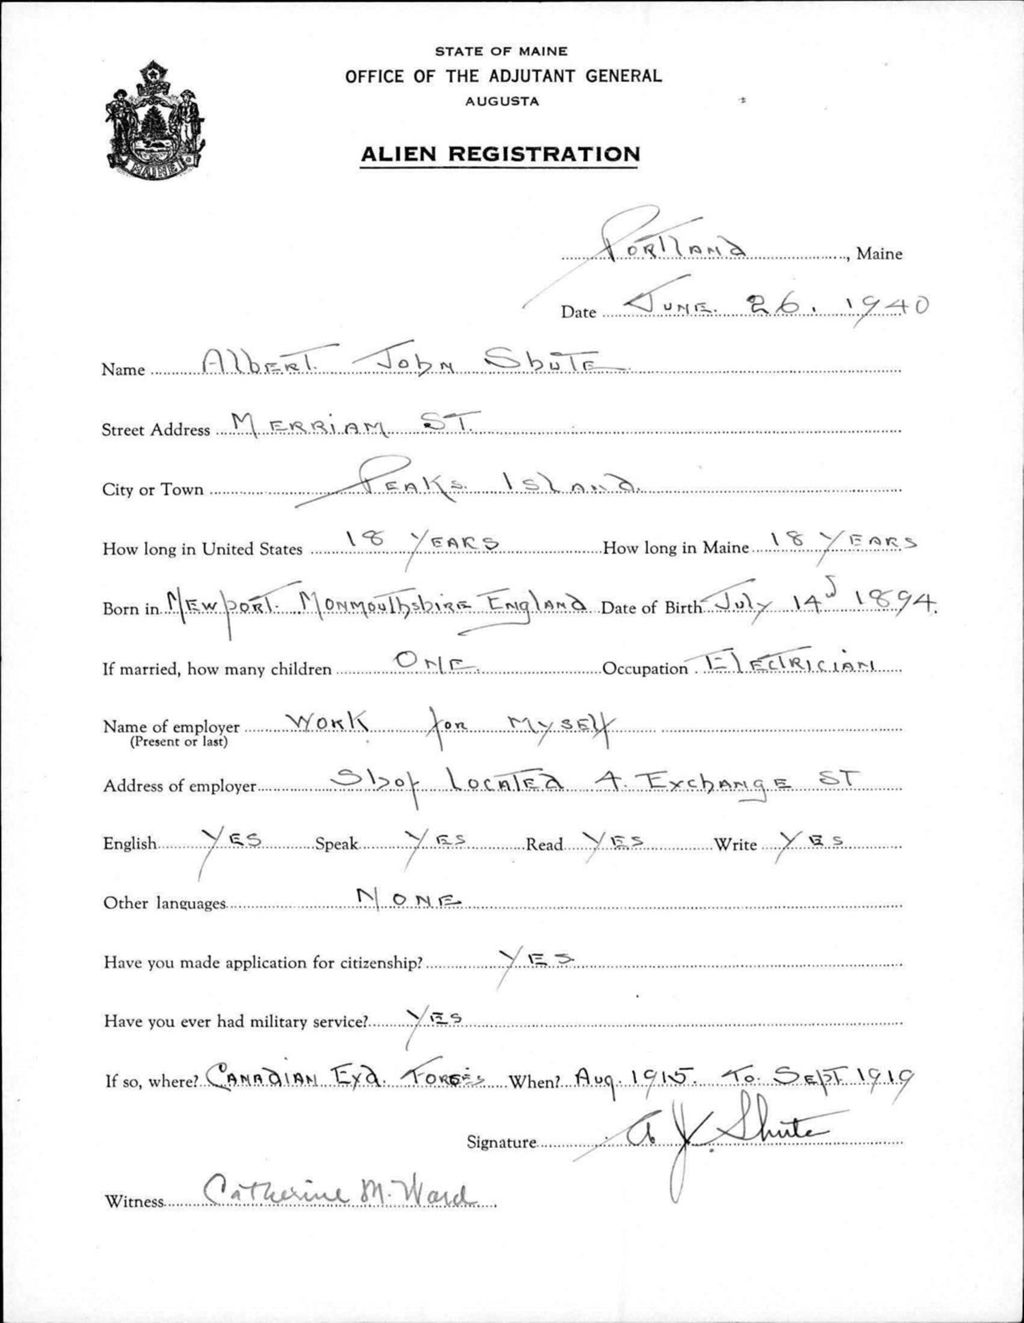 STATE OF MAINE
OFFICE OF THE ADJUTANT GENERAL
AUGUSTA
ALIEN REGISTRATION
MAINE
Portland, Maine
Date June. 26. 1940
Name Albert. John Shute
Street Address Merriam St.
City or Town Peaks Island.
How long in United States 18 Years How long in Maine 18 Years
Born in Newport. Monmouthshire England Date of Birth July 14th 1894.
If married, how many children One Occupation Electrician
Name of employer Work for Myself
(Present or last)
Address of employer Shop Located 4. Exchange St
English Yes Speak Yes Read Yes Write Yes
Other languages None
Have you made application for citizenship? Yes
Have you ever had military service? Yes
If so, where? Canadian Exd. Forces When? Aug. 1915. To. Sept 1919
Signature A. J. Shute
Witness Catherine M. Ward